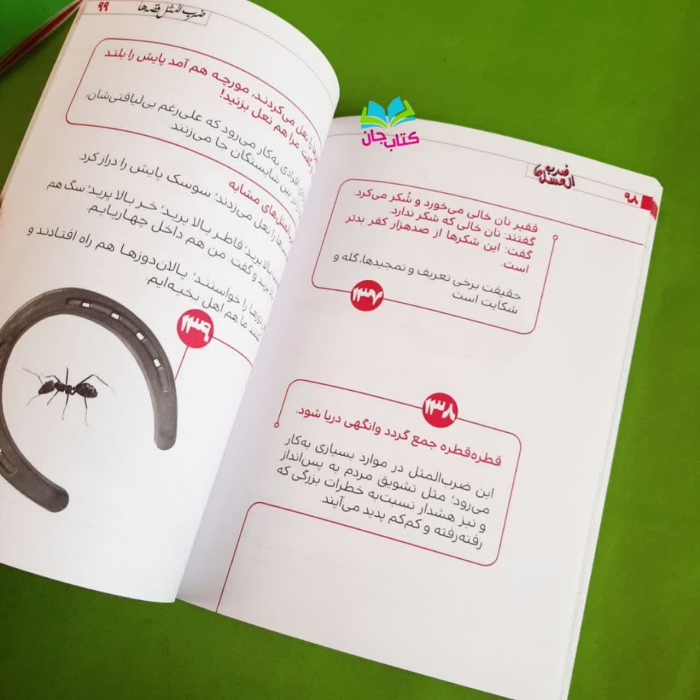 ۹۸
ضرب
المثل‌ها
فقیر نان خالی می‌خورد و شُکر می‌کرد.
گفتند: نان خالی که شکر ندارد.
گفت: این شکرها از صدهزار کفر بدتر
است.
حقیقت برخی تعریف و تمجیدها، گله و
شکایت است.
۱۳۷
۱۳۸
قطره‌قطره جمع گردد وانگهی دریا شود.
این ضرب‌المثل در موارد بسیاری به‌کار
می‌رود؛ مثل تشویق مردم به پس‌انداز
و نیز هشدار نسبت‌به خطرات بزرگی که
رفته‌رفته و کم‌کم پدید می‌آیند.
کتاب جان
ضرب‌المثل قصه‌ها
۹۹
را نعل می‌کردند، مورچه هم آمد پایش را بلند
گفت: مرا هم نعل بزنید!
افرادی به‌کار می‌رود که علی‌رغم بی‌لیاقتی‌شان،
بین شایستگان جا می‌زنند.
مثل‌های مشابه
را نعل می‌زدند؛ سوسک پایش را دراز کرد.
بالا پرید؛ قاطر بالا پرید؛ خر بالا پرید؛ سگ هم
پرید و گفت: من هم داخل چهارپایم.
را خواستند؛ پالان‌دوزها هم راه افتادند و
ما هم اهل بخیه‌ایم.
۱۳۹